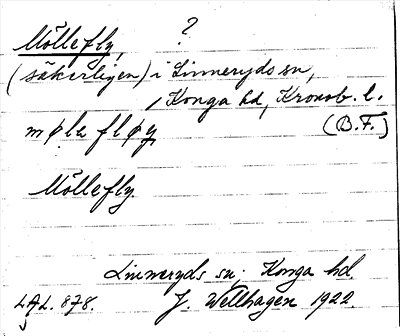 ?
Möllefly,
(säkerligen) i Linneryds sn,
Konga hd, Kronob. l.
(B.F.)
møle fløy
Möllefly.
Linneryds sn. Konga hd.
LAL. 878. J. Wellhagen 1922.